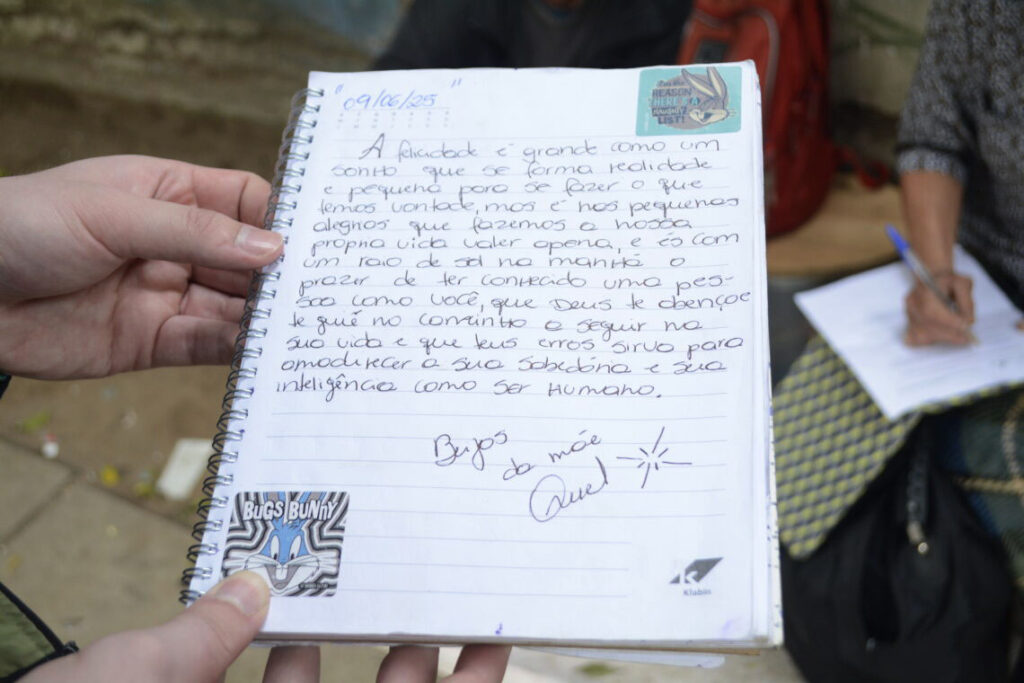 "09/06/25"
I'm the
REASON
THERE IS A
NAUGHTY
LIST!
A felicidade é grande como um
sonho que se forma realidade
e pequena para se fazer o que
temos vontade, mas é nas pequenas
alegrias que fazemos a nossa
propria vida valer apena, e és com
um raio de sol na manhã o
prazer de ter conhecido uma pes-
soa como você, que Deus te abençoe
te guiê no caminho a seguir na
sua vida e que teus erros sirva para
amadurecer a sua sabedória e sua
inteligência como ser Humano.
Beijos
da mãe
Quel
BUGS BUNNY
Klabin